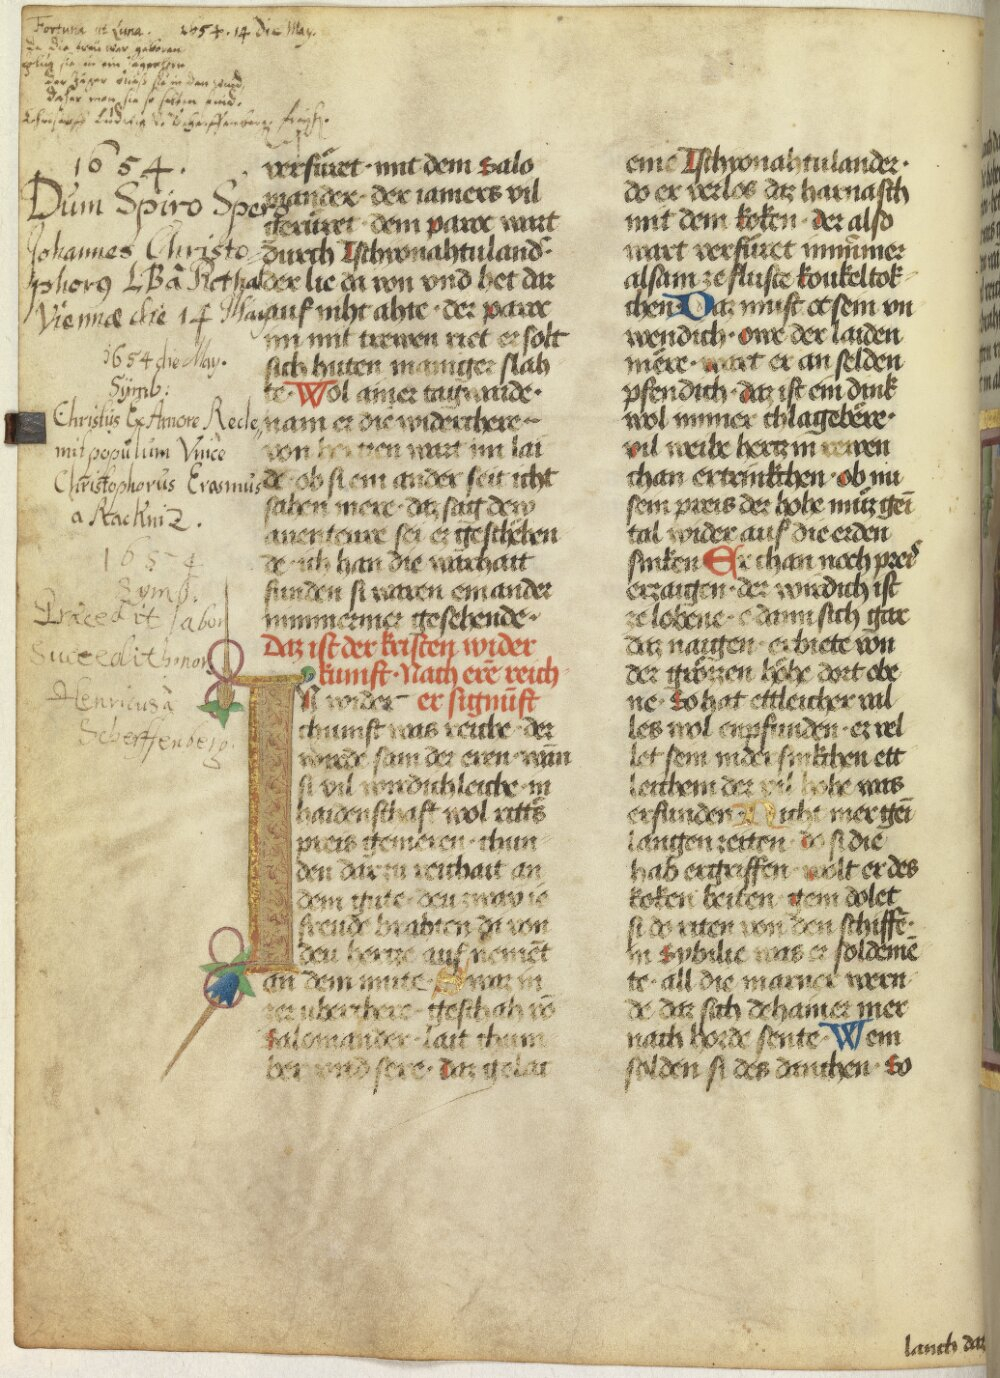 Fortuna ut Luna. 1654. 14 die May.
Da die treu war geboren
sie in ein
der Jäger sie in den wind
daher man sie so selten find.
Christoph Ludwig
1654.
Dum Spiro Spero
Johannes Christo
phorus L B â
Viennæ die 14 May
1654 die May.
Symb:
Christus Ex Amore Rede
mit populum Vnice
Christophorus Erasmus
a
1654
Symb.
Præcedit labor
Succedit honor
Henricus â
Scherffenberg
verfuret · mit dem Salo
mander · der iamers vil
geruret · dem parx wart
Durch Tschyonahtuland
der lie da von vnd het daz
auf niht ahte · der parx
im mit trewen riet er solt
sich huten maniger slah
te · Wol ainer tagwaide ·
nam er die widerchere
von hertzen wart im lai
de · ob si ein ander seit icht
sahen mere · daz sag dew
auenteure sei er geschehen
de · ich han die warhait
funden si waren ein ander
nimmermer gesehende ·
Daz ist der kristen wider
kunft · Nach ere reich
Sí wider er signuft
chumft was reiche · der
wirde sam der eren · wann
si vil wirdichleiche · in
haidenschaft wol ritters
preis gemeren · chun
den dar zu reichait an
dem gute · deu zway ie
freude brahten di von
den herze auf nement
an dem mute · Swaz in
zer uberchere · geschah von
Salomander · lait chum
ber vnd sere · daz gelac
eine Tschyonahtulander ·
do er verlos daz harnasch
mit dem koken · der also
wart verfuret nimmer
alsam ze fluste koukeltok
chen · Daz must de sein vn
wendich · owe der laiden
mere · wart er an selden
pfendich · daz ist ein dink
wol immer chlagebere ·
vil weibe hertz in rewen
chan ertrinkchen · ob nu
sein preis der hohe muz gein
tal wider auf die erden
sinken Er chan noch preis
erzaigen · der wirdich ist
ze lobene · e dann sich gar
daz naigen · erbiete von
der grözzen höhe dort obe
ne · So hat ettleicher vil
les wol enpfunden · er vel
let sein nider sinkchen ett
leichem der vil hohe was
erfunden Nicht mer gein
langen zeiten · do si die
hab ergriffen · wolt er des
koken beiten · gein dolet
si do riten von den schiffen ·
in Sybilie was er soldemen
te · all die marner wern
de daz sich dehainer mer
nach horde sente · Wem
solden si des danchen · So
lauch daz